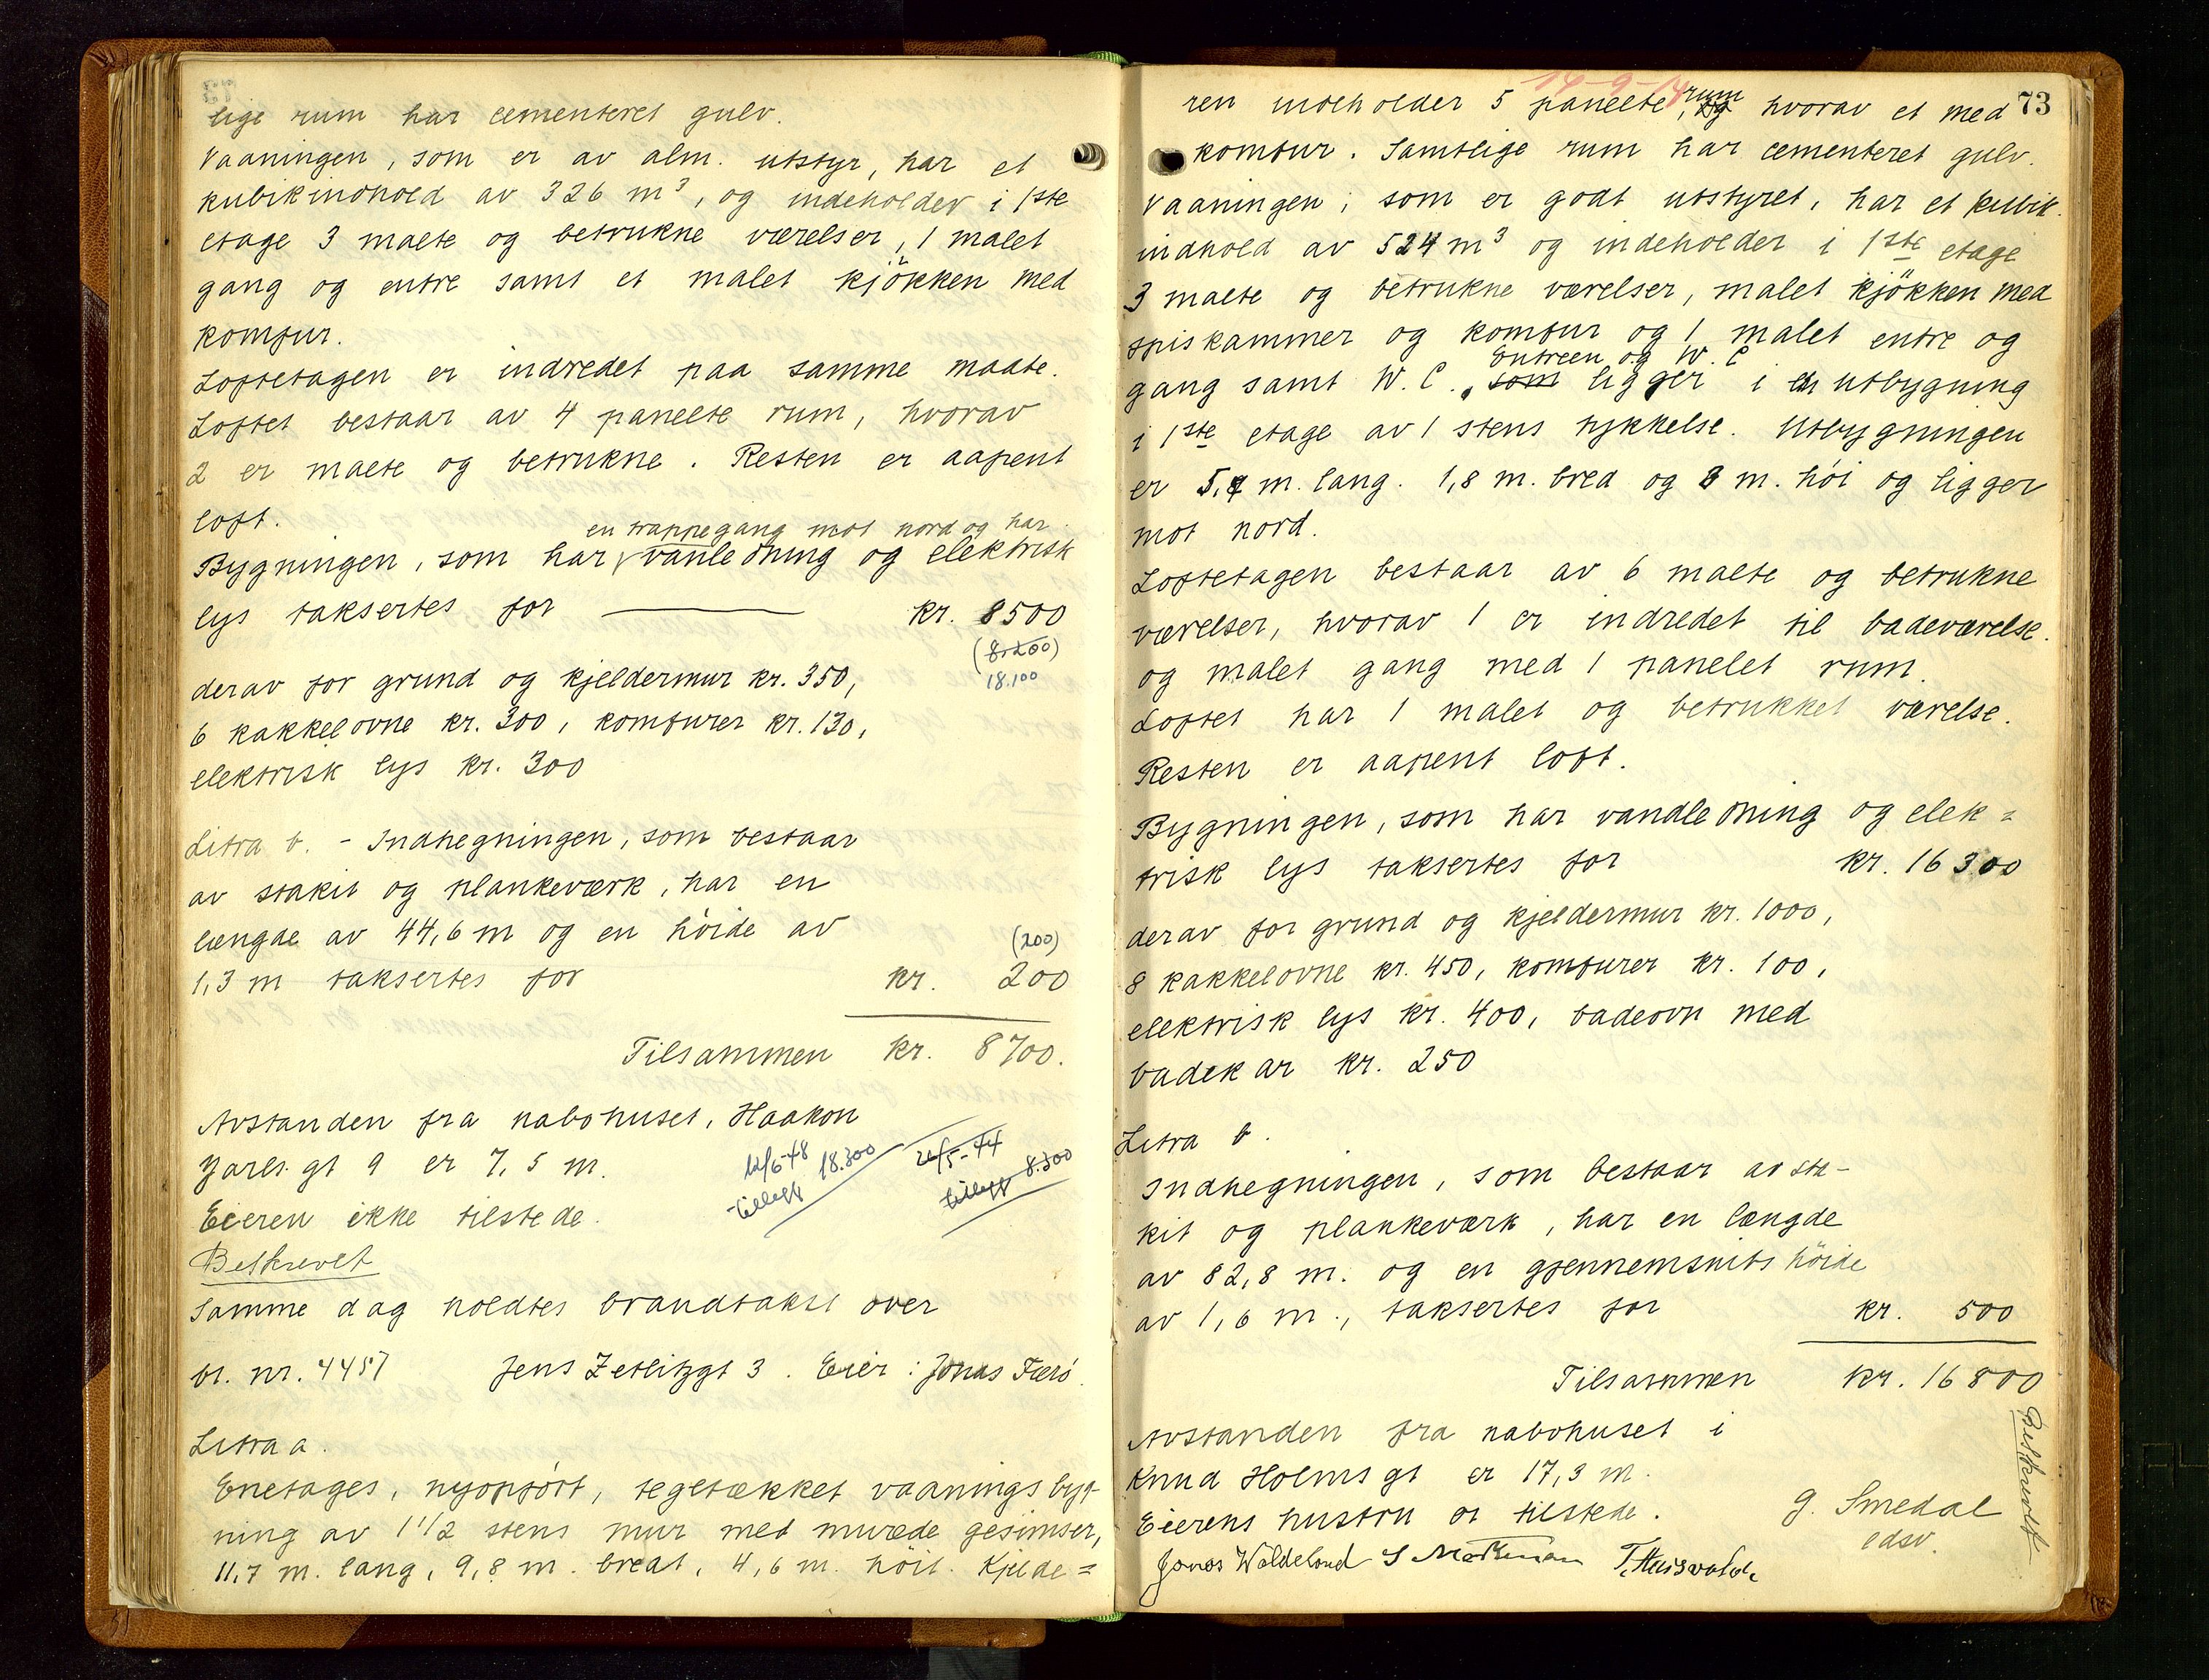 lige rum har cementeret gulv.
Vaaningen, som er av alm. utstyr, har et
kubikindhold av 326 m³, og indeholder i 1ste
etage 3 malte og betrukne værelser, 1 malet
gang og entre samt et malet kjökken med
komfur.
Loftetagen er indredet paa samme maate.
Loftet bestaar av 4 panelte rum, hvorav
2 er malte og betrukne. Resten er aapent
loft.
en trappegang mot nord og har
Bygningen, som har vanledning og elektrisk
lys taksertes for — kr. 8500
(8.200)
18.100
derav for grund og kjeldermur kr. 350,
6 kakkelovne kr. 300, komfurer kr. 130,
elektrisk lys kr. 300
Litra b. - Indhegningen, som bestaar
av stakit og plankeværk, har en
længde av 44,6 m og en höide av
(200)
1,3 m taksertes for kr. 200
Tilsammen kr. 8700.
Avstanden fra nabohuset, Haakon
Jarls gt 9 er 7,5 m.
12/6-48 18.300
tillegg
26/5-44
tillegg 8.300
Eieren ikke tilstede.
Beskrevet
Samme dag holdtes brandtakst over
br. nr. 4457 Jens Zetlitzgt 3. Eier: Jonas Færö.
Litra a.
Enetages, nyopfört, tegltækket vaaningsbyg-
ning av 1 1/2 stens mur med murede gesimser,
11,7 m. lang, 9,8 m. bredt, 4,6 m. höit. Kjelde=
14-9-14
73
rum
ren indeholder 5 panelte, og hvorav et med
komfur. Samtlige rum har cementeret gulv.
Vaaningen, som er godt utstyret, har et kubik-
indhold av 524 m³ og indeholder i 1ste etage
3 malte og betrukne værelser, malet kjökken med
spiskammer og komfur og 1 malet entre og
Entreen og W.C
gang samt W.C., som ligger i en utbygning
i 1ste etage av 1 stens tykkelse. Utbygningen
er 5,4 m. lang. 1,8 m. bred og 3 m. höi og ligger
mot nord.
Loftetagen bestaar av 6 malte og betrukne
værelser, hvorav 1 er indredet til badeværelse.
og malet gang med 1 panelet rum.
Loftet har 1 malet og betrukket værelse.
Resten er aapent loft.
Bygningen, som har vandledning og elek=
trisk lys taksertes for kr. 16300
derav for grund og kjeldermur kr. 1000,
8 kakkelovne kr. 450, komfurer kr. 100,
elektrisk lys kr. 400, badeovn med
badekar kr. 250
Litra b.
Indhegningen, som bestaar av sta-
kit og plankeværk, har en længde
av 82,8 m. og en gjennemsnits höide
av 1,6 m., taksertes for kr. 500
Tilsammen kr. 16800
Avstanden fra nabohuset i
Knud Holms gt er 17,3 m.
Eierens hustru er tilstede.
Beskrevet
G. Smedal
edsv.
Jonas Waldeland